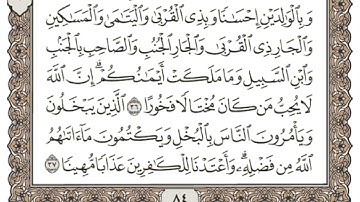 وَبِٱلْوَٰلِدَيْنِ إِحْسَٰنًا وَبِذِى ٱلْقُرْبَىٰ وَٱلْيَتَٰمَىٰ وَٱلْمَسَٰكِينِ
وَٱلْجَارِ ذِى ٱلْقُرْبَىٰ وَٱلْجَارِ ٱلْجُنُبِ وَٱلصَّاحِبِ بِٱلْجَنۢبِ
وَٱبْنِ ٱلسَّبِيلِ وَمَا مَلَكَتْ أَيْمَٰنُكُمْ ۗ إِنَّ ٱللَّهَ
لَا يُحِبُّ مَن كَانَ مُخْتَالًا فَخُورًا ٣٦ ٱلَّذِينَ يَبْخَلُونَ
وَيَأْمُرُونَ ٱلنَّاسَ بِٱلْبُخْلِ وَيَكْتُمُونَ مَآ ءَاتَىٰهُمُ
ٱللَّهُ مِن فَضْلِهِۦ ۗ وَأَعْتَدْنَا لِلْكَٰفِرِينَ عَذَابًا مُّهِينًا ٣٧
٨٤